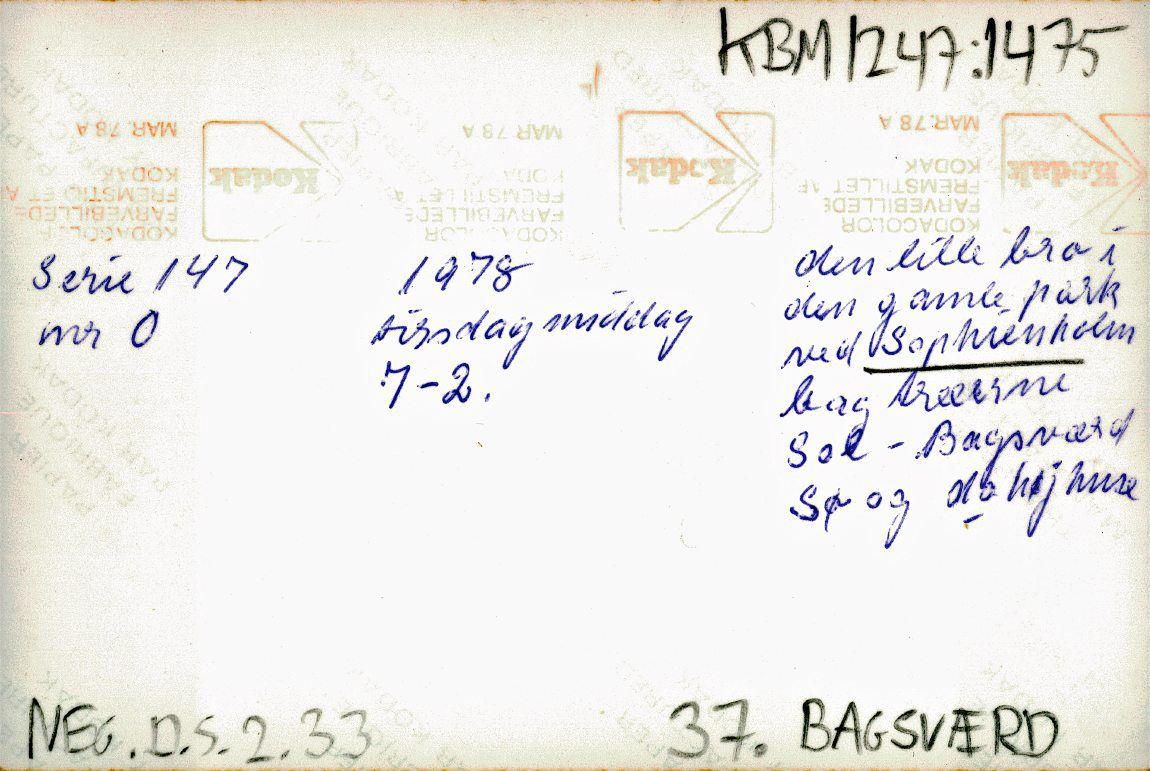 KBM1247:1475
MAR. 78 A
KODAK
FREMSTILLET AF
FARVEBILLEDE
KODACOLOR
Kodak
MAR 78 A
FARVEBILLEDE
KODACOLOR
Kodak
MAR. 78 A
KODAK
FREMSTILLET AF
FARVEBILLEDE
KODACOLOR
Kodak
Serie 147
nr 0
1978
tirsdag middag
7-2.
den lille bro i
den gamle park
ved Sophienholm
bag træerne
Sol - Bagsværd
Sø og højhuse
NEG. D.S. 2. 33
37. BAGSVÆRD